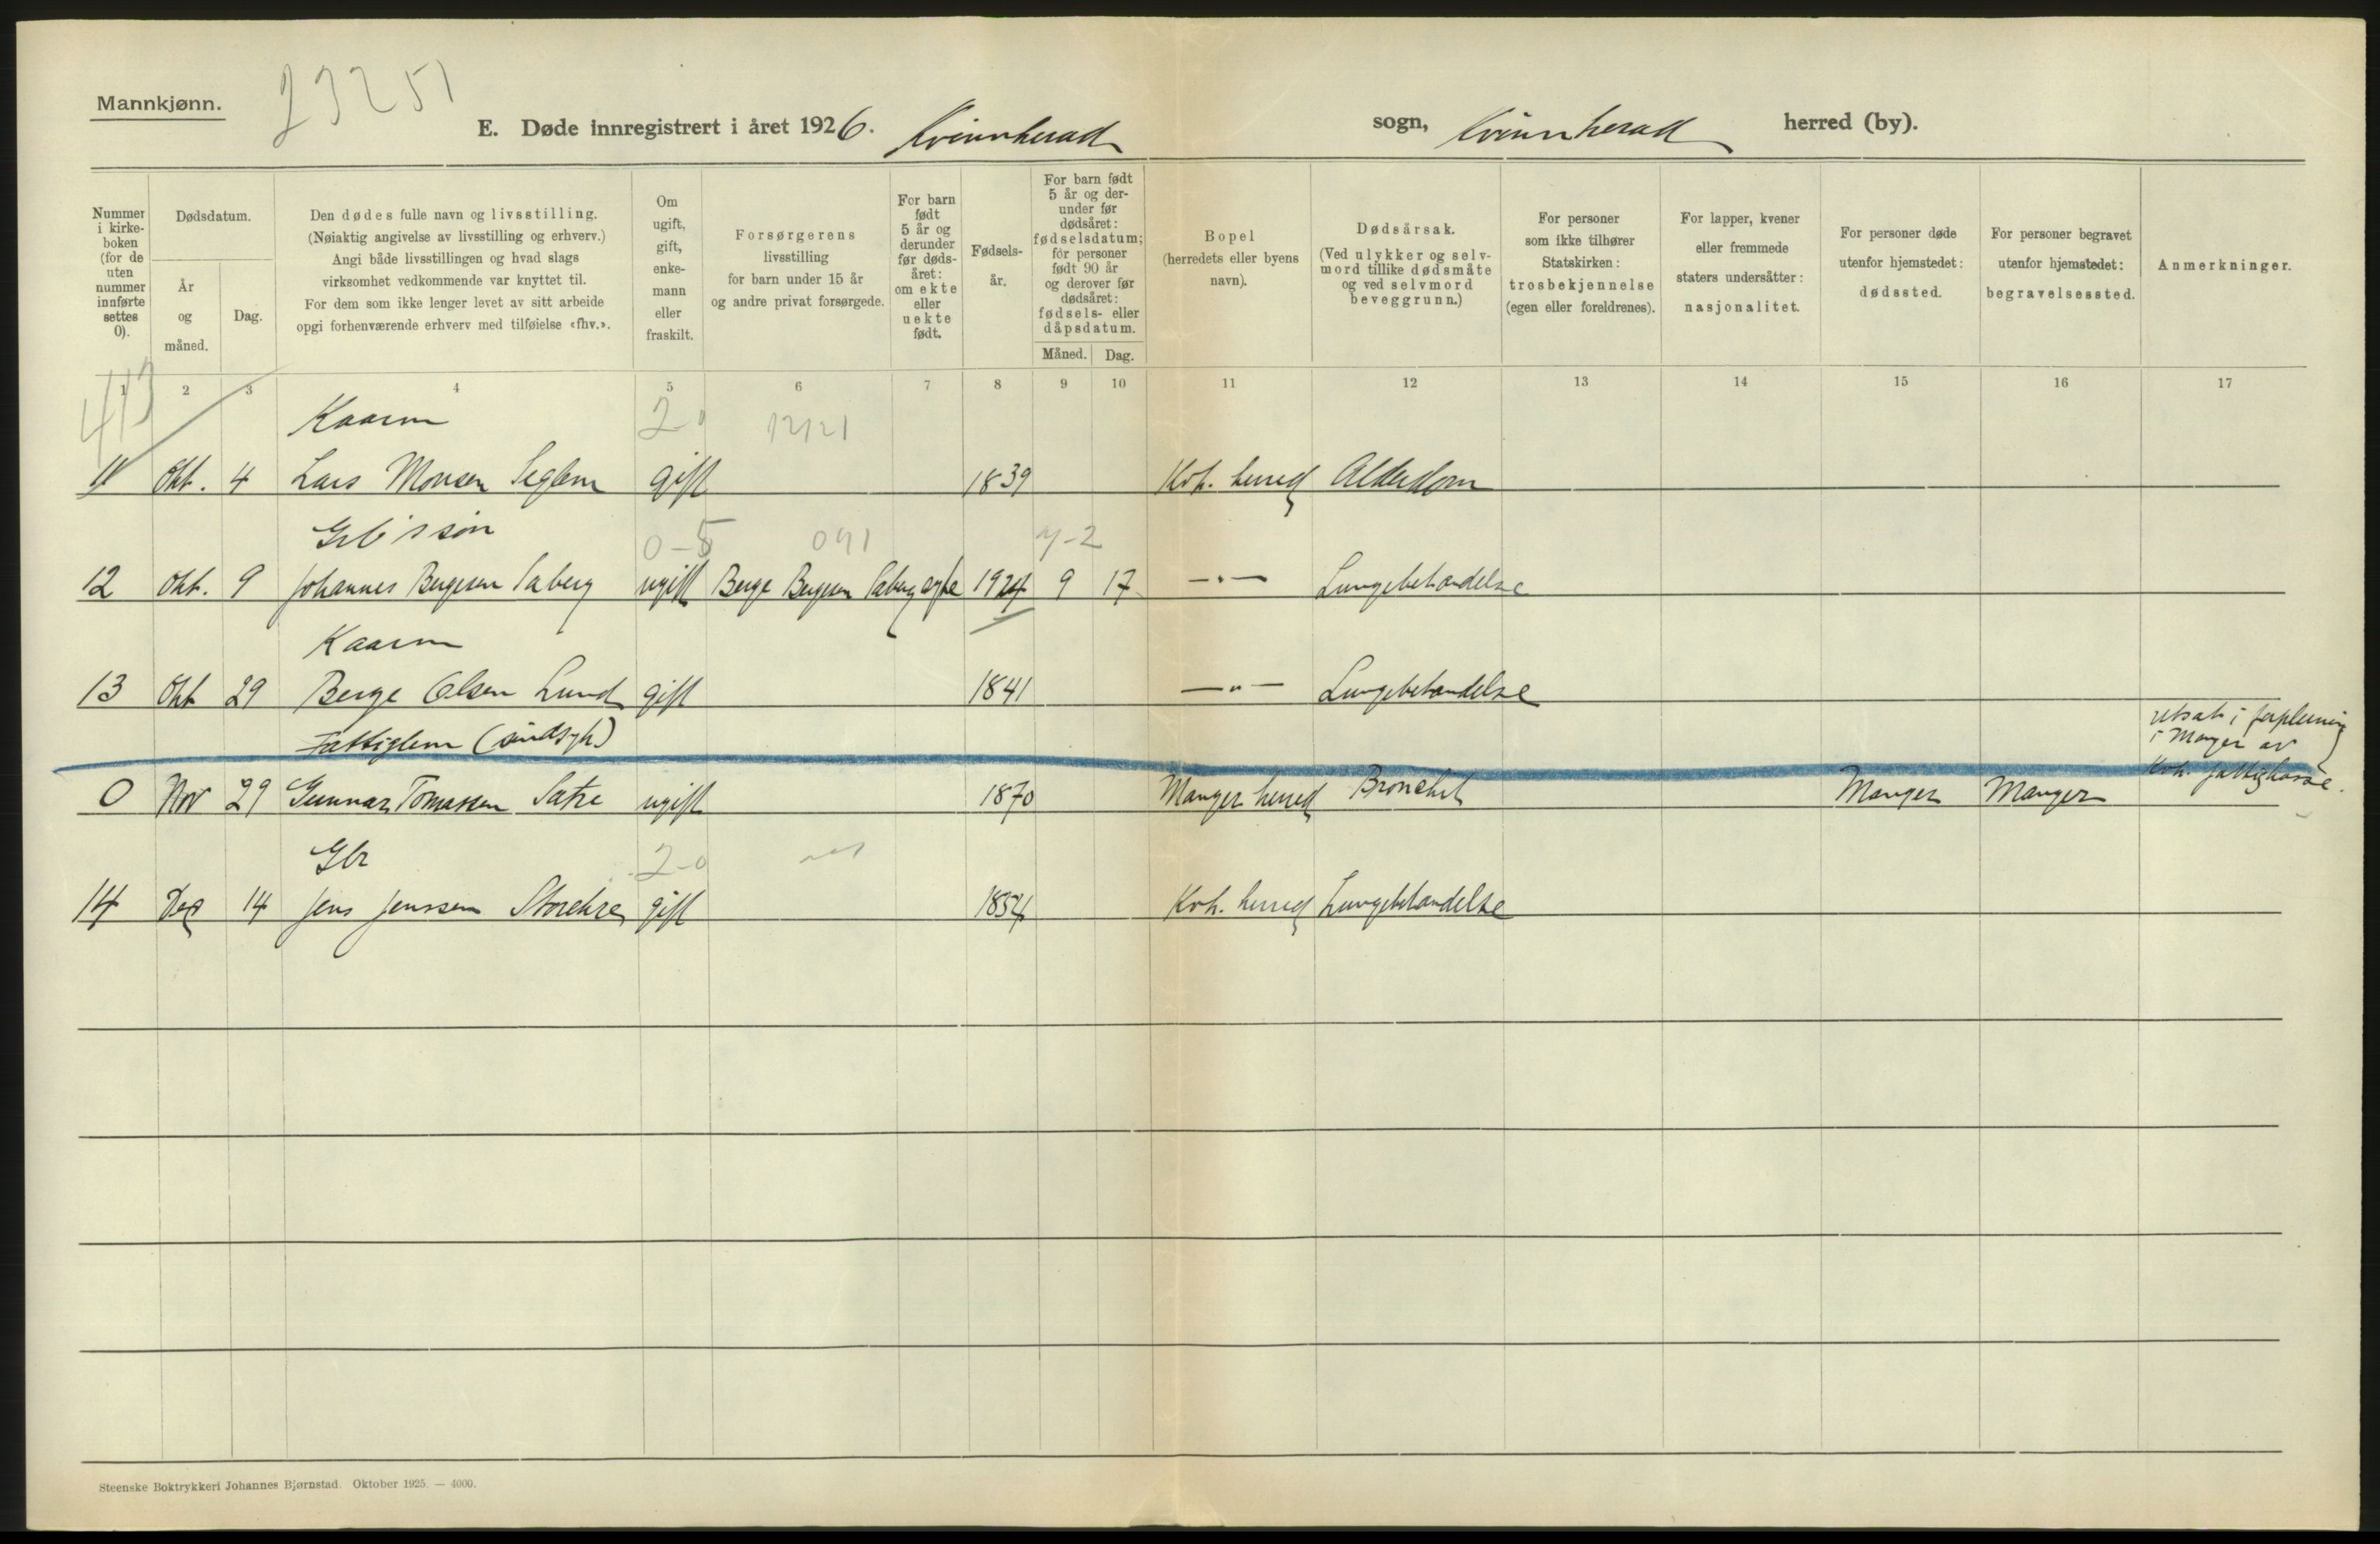 Mannkjønn.
23251
E. Døde innregistrert i året 1926. Kvinnherad sogn, Kvinnherad herred (by).
Nummer i kirke-boken (for de uten nummer innførte settes 0).
Dødsdatum.
År og måned.
Dag.
Den dødes fulle navn og livsstilling.
(Nøiaktig angivelse av livsstilling og erhverv.)
Angi både livsstillingen og hvad slags
virksomhet vedkommende var knyttet til.
For dem som ikke lenger levet av sitt arbeide
opgi forhenværende erhverv med tilføielse «fhv.».
Om ugift, gift, enke-mann eller fraskilt.
Forsørgerens
livsstilling
for barn under 15 år
og andre privat forsørgede.
For barn født 5 år og derunder før døds-året: om ekte eller uekte født.
Fødsels-år.
For barn født 5 år og der-under før dødsåret: fødselsdatum; for personer født 90 år og derover før dødsåret: fødsels- eller dåpsdatum.
Måned. Dag.
Bopel
(herredets eller byens navn).
Dødsårsak.
(Ved ulykker og selv-mord tillike dødsmåte og ved selvmord beveggrunn.)
For personer som ikke tilhører Statskirken: trosbekjennelse (egen eller foreldrenes).
For lapper, kvener eller fremmede staters undersåtter: nasjonalitet.
For personer døde utenfor hjemstedet: dødssted.
For personer begravet utenfor hjemstedet: begravelsessted.
Anmerkninger.
1 2 3 4 5 6 7 8 9 10 11 12 13 14 15 16 17
413
Kaarm 2 0 1221
11 Okt. 4 Lars Monsen Seglem gift 1839 Kvh. herred Alderdom
Gbr's søn 0-5 091 4-2
12 Okt. 9 Johannes Bergesen Saberg ugift Berge Bergesen Saberg egte 1924 9 17 —"— Lungebetændelse
Kaarm
13 Okt 29 Berge Olsen Lund gift 1841 —"— Lungebetændelse
Fattiglem (sindsyk)
utsat i forpleining
i Manger av
Kvh. fattigkasse.
0 Nov 29 Gunnar Tomassen Sætre ugift 1870 Manger herred Bronchit Manger Manger
Gbr 2-0
14 Des 14 Jens Jenssen Storekre gift 1854 Kvh. herred Lungebetændelse
Steenske Boktrykkeri Johannes Bjørnstad. Oktober 1925. — 4000.